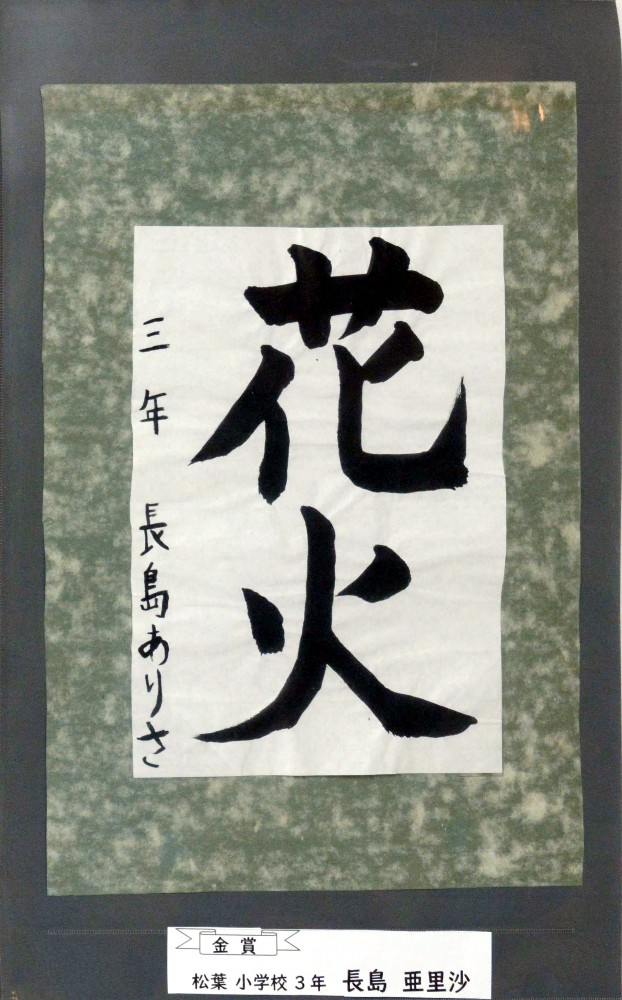 花火
三年 長島ありさ
金賞
松葉 小学校 3年 長島 亜里沙